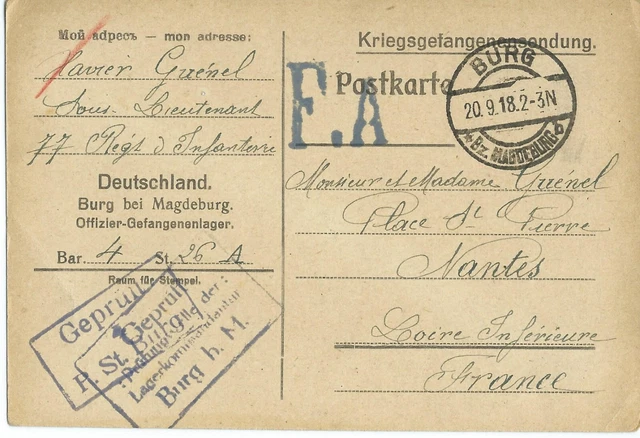 Мой адресъ — mon adresse:
Xavier Guénel
Sous-Lieutenant
77 Régt d'Infanterie
Deutschland.
Burg bei Magdeburg.
Offizier-Gefangenenlager.
Bar. 4 St. 26 A
Raum für Stempel.
Geprüft
P. St. Burg
Geprüft
Prüfungsstelle der
Lagerkommandantur
Burg b. M.
Kriegsgefangenensendung.
Postkarte
F.A
BURG
20.9.18.2-3N
*Bz. MAGDEBURG
Monsieur et Madame Guénel
Place St Pierre
Nantes
Loire Inférieure
France